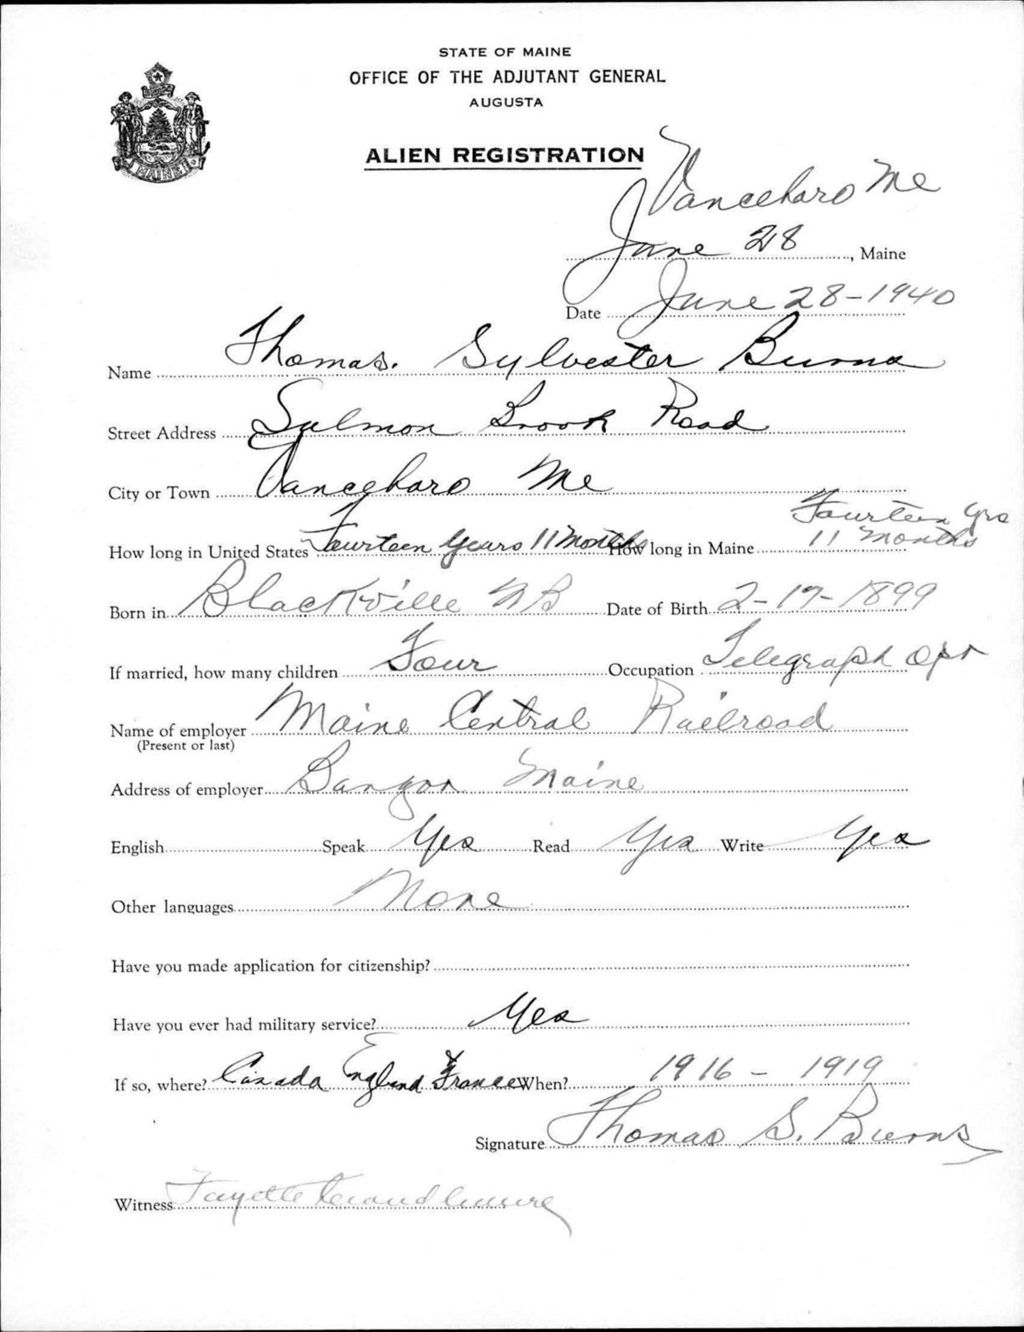 STATE OF MAINE
OFFICE OF THE ADJUTANT GENERAL
AUGUSTA
ALIEN REGISTRATION
MAINE
Vanceboro Me
June 28, Maine
Date June 28-1940
Name Thomas. Sylvester Burns
Street Address Salmon Brook Road
City or Town Vanceboro Me
How long in United States Fourteen Years 11 Months How long in Maine Fourteen yrs 11 months
Born in Blackville NB Date of Birth 2-17-1899
If married, how many children Four Occupation Telegraph Opr
Name of employer Maine Central Railroad
(Present or last)
Address of employer Bangor Maine
English Speak Yes Read Yes Write Yes
Other languages None
Have you made application for citizenship?
Have you ever had military service? Yes
If so, where? Canada England & France When? 1916 - 1919
Signature Thomas S. Burns
Witness Fayette